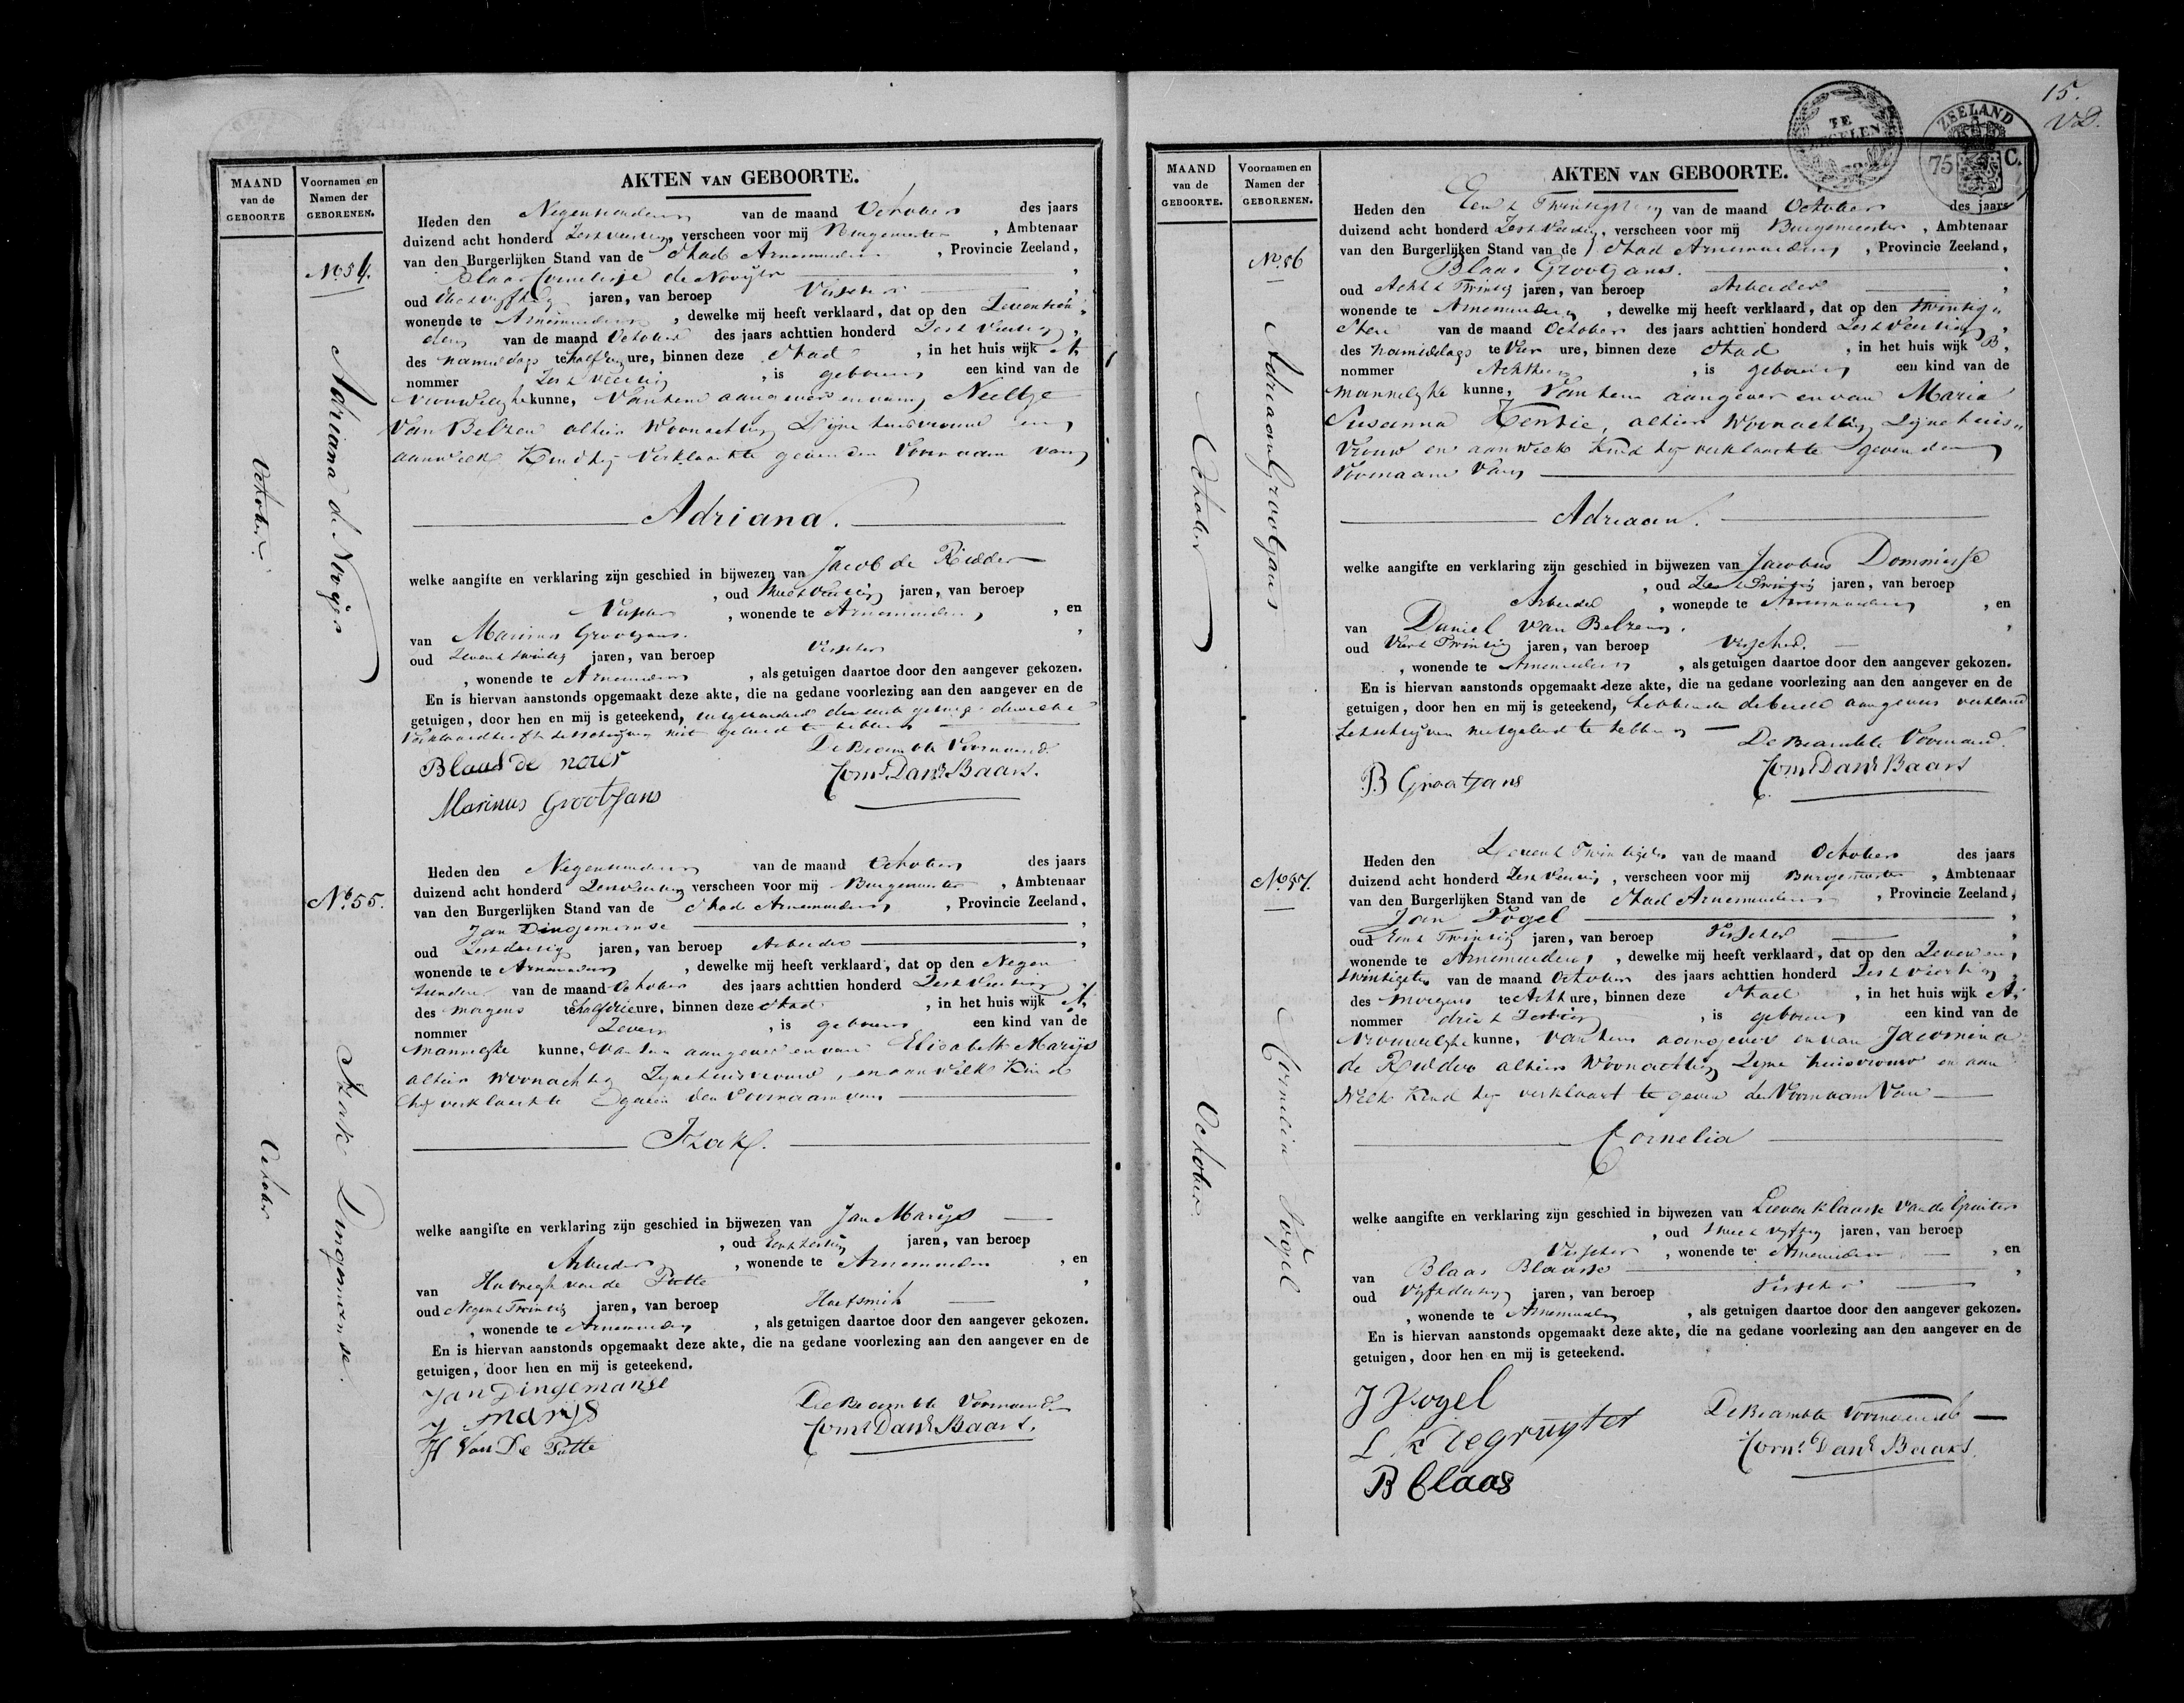 MAAND
van de
GEBOORTE
Voornamen en
Namen der
GEBORENEN.
AKTEN VAN GEBOORTE.
No. 54.
Adriana de Nooijer
October.
Heden den Negentienden van de maand October des jaars
duizend acht honderd Zes & Veertig verscheen voor mij Burgemeester , Ambtenaar
van den Burgerlijken Stand van de Stad Arnemuiden , Provincie Zeeland,
de Nooijer
oud jaren, van beroep Visscher
wonende te Arnemuiden , dewelke mij heeft verklaard, dat op den Zeventien
den van de maand October des jaars achttien honderd Zes & Veertig,
des namiddags te half ure, binnen deze Stad , in het huis wijk A,
nommer Zes & Veertig , is geboren een kind van de
vrouwelijke kunne, van hem aangever en van Neeltje
Van Belzen alhier woonachtig Zijne huisvrouw en
aan welk Kind hij verklaarde geven den Voornaam van
Adriana.
welke aangifte en verklaring zijn geschied in bijwezen van Jacob de Ridder
, oud Twee & Veertig jaren, van beroep
Visscher , wonende te Arnemuiden , en
van Marinus Grootjans.
oud Zeven & twintig jaren, van beroep Visscher
, wonende te Arnemuiden , als getuigen daartoe door den aangever gekozen.
En is hiervan aanstonds opgemaakt deze akte, die na gedane voorlezing aan den aangever en de
getuigen, door hen en mij is geteekend, uitgezonderd de eerste getuige dewelke
verklaard heeft het schrijven niet geleerd te hebben
Blaas de nooir
De Beambte Voornoemd.
Marinus Grootjans
Corns. Danl. Baars.
No. 55.
Izak Dingemanse.
October
Heden den Negentienden van de maand October des jaars
duizend acht honderd Zes & Veertig verscheen voor mij Burgemeester , Ambtenaar
van den Burgerlijken Stand van de Stad Arnemuiden , Provincie Zeeland,
Jan Dingemanse
oud Zes & dertig jaren, van beroep Arbeider
wonende te Arnemuiden , dewelke mij heeft verklaard, dat op den Negen
tienden van de maand October des jaars achttien honderd Zes & Veertig
des morgens te half drie ure, binnen deze Stad , in het huis wijk A,
nommer Zeven , is geboren een kind van de
mannelijke kunne, van hem aangever en van Elisabeth Marijs
alhier woonachtig Zijne huisvrouw, en aan welk Kind
hij verklaarde te geven den Voornaam van
Izak.
welke aangifte en verklaring zijn geschied in bijwezen van Jan Marijs
, oud Een & Zestig jaren, van beroep
Arbeider , wonende te Arnemuiden , en
van Hubregt van de Putte
oud Negen & Twintig jaren, van beroep Hoefsmid
, wonende te Arnemuiden , als getuigen daartoe door den aangever gekozen.
En is hiervan aanstonds opgemaakt deze akte, die na gedane voorlezing aan den aangever en de
getuigen, door hen en mij is geteekend.
Jan Dingemanse
J marijs
H Van De Putte
De Beambte Voornoemd
Corns. Danl. Baars.
15.
TE
ZEELAND
75 C.
MAAND
van de
GEBOORTE.
Voornamen en
Namen der
GEBORENEN.
AKTEN VAN GEBOORTE.
No. 56
Adriaan Grootjans
October
Heden den Een & Twintigsten van de maand October des jaars
duizend acht honderd Zes & Veertig, verscheen voor mij Burgemeester , Ambtenaar
van den Burgerlijken Stand van de Stad Arnemuiden , Provincie Zeeland,
Blaas Grootjans.
oud Acht & Twintig jaren, van beroep Arbeider
wonende te Arnemuiden , dewelke mij heeft verklaard, dat op den twintig
sten van de maand October des jaars achttien honderd Zes & Veertig,
des namiddags te Vier ure, binnen deze Stad , in het huis wijk B,
nommer Achttien , is geboren een kind van de
mannelijke kunne, van hem aangever en van Maria
Susanna Kentie, alhier Woonachtig Zijne huis
vrouw en aan welk Kind hij verklaarde geven den
Voornaam van
Adriaan.
welke aangifte en verklaring zijn geschied in bijwezen van Jacobus Dommisse
, oud Zes & Twintig jaren, van beroep
Arbeider , wonende te Arnemuiden , en
van Daniel van Belzen.
oud Vier & Twintig jaren, van beroep Visscher.
, wonende te Arnemuiden , als getuigen daartoe door den aangever gekozen.
En is hiervan aanstonds opgemaakt deze akte, die na gedane voorlezing aan den aangever en de
getuigen, door hen en mij is geteekend, hebbende de beide verklaard
het schrijven niet geleerd te hebben
De Beambte Voornoemd.
B Grootjans
Corns. Danl. Baars
No. 57.
Cornelia Vogel
October
Heden den Zeven & Twintigsten van de maand October des jaars
duizend acht honderd Zes & Veertig, verscheen voor mij Burgemeester , Ambtenaar
van den Burgerlijken Stand van de Stad Arnemuiden , Provincie Zeeland,
Jan Vogel
oud Een & Twintig jaren, van beroep Visscher
wonende te Arnemuiden , dewelke mij heeft verklaard, dat op den Zeven en
twintigsten van de maand October des jaars achttien honderd Zes & Veertig,
des morgens te Acht ure, binnen deze Stad , in het huis wijk A,
nommer drie & Zestig , is geboren een kind van de
Vrouwelijke kunne, van hem aangever en van Jacomina
de Ridder alhier Woonachtig Zijne huisvrouw en aan
welk Kind hij verklaart te geven den Voornaam van
Cornelia
welke aangifte en verklaring zijn geschied in bijwezen van Lieven Klaasse van de Gruiter
, oud twee & vijftig jaren, van beroep
Visscher , wonende te Arnemuiden , en
van Blaas Blaasse
oud Vijf & dertig jaren, van beroep Visscher
, wonende te Arnemuiden , als getuigen daartoe door den aangever gekozen.
En is hiervan aanstonds opgemaakt deze akte, die na gedane voorlezing aan den aangever en de
getuigen, door hen en mij is geteekend.
J Vogel
L K degruyter
B Claas
De Beambte Voornoemd
Corns. Danl. Baars.